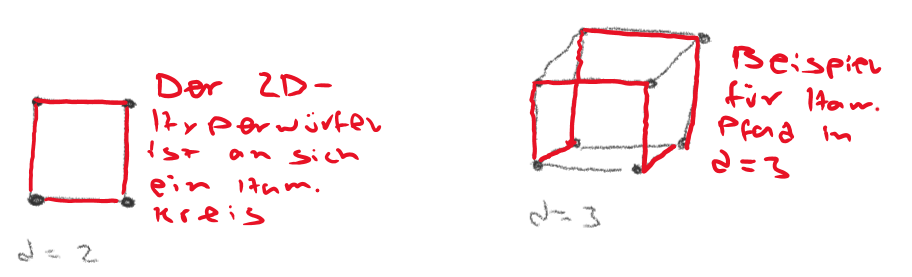 Der 2D-
Hyperwürfel
ist an sich
ein Ham.
Kreis
d = 2
Beispiel
für Ham.
Pfad in
d = 3
d = 3